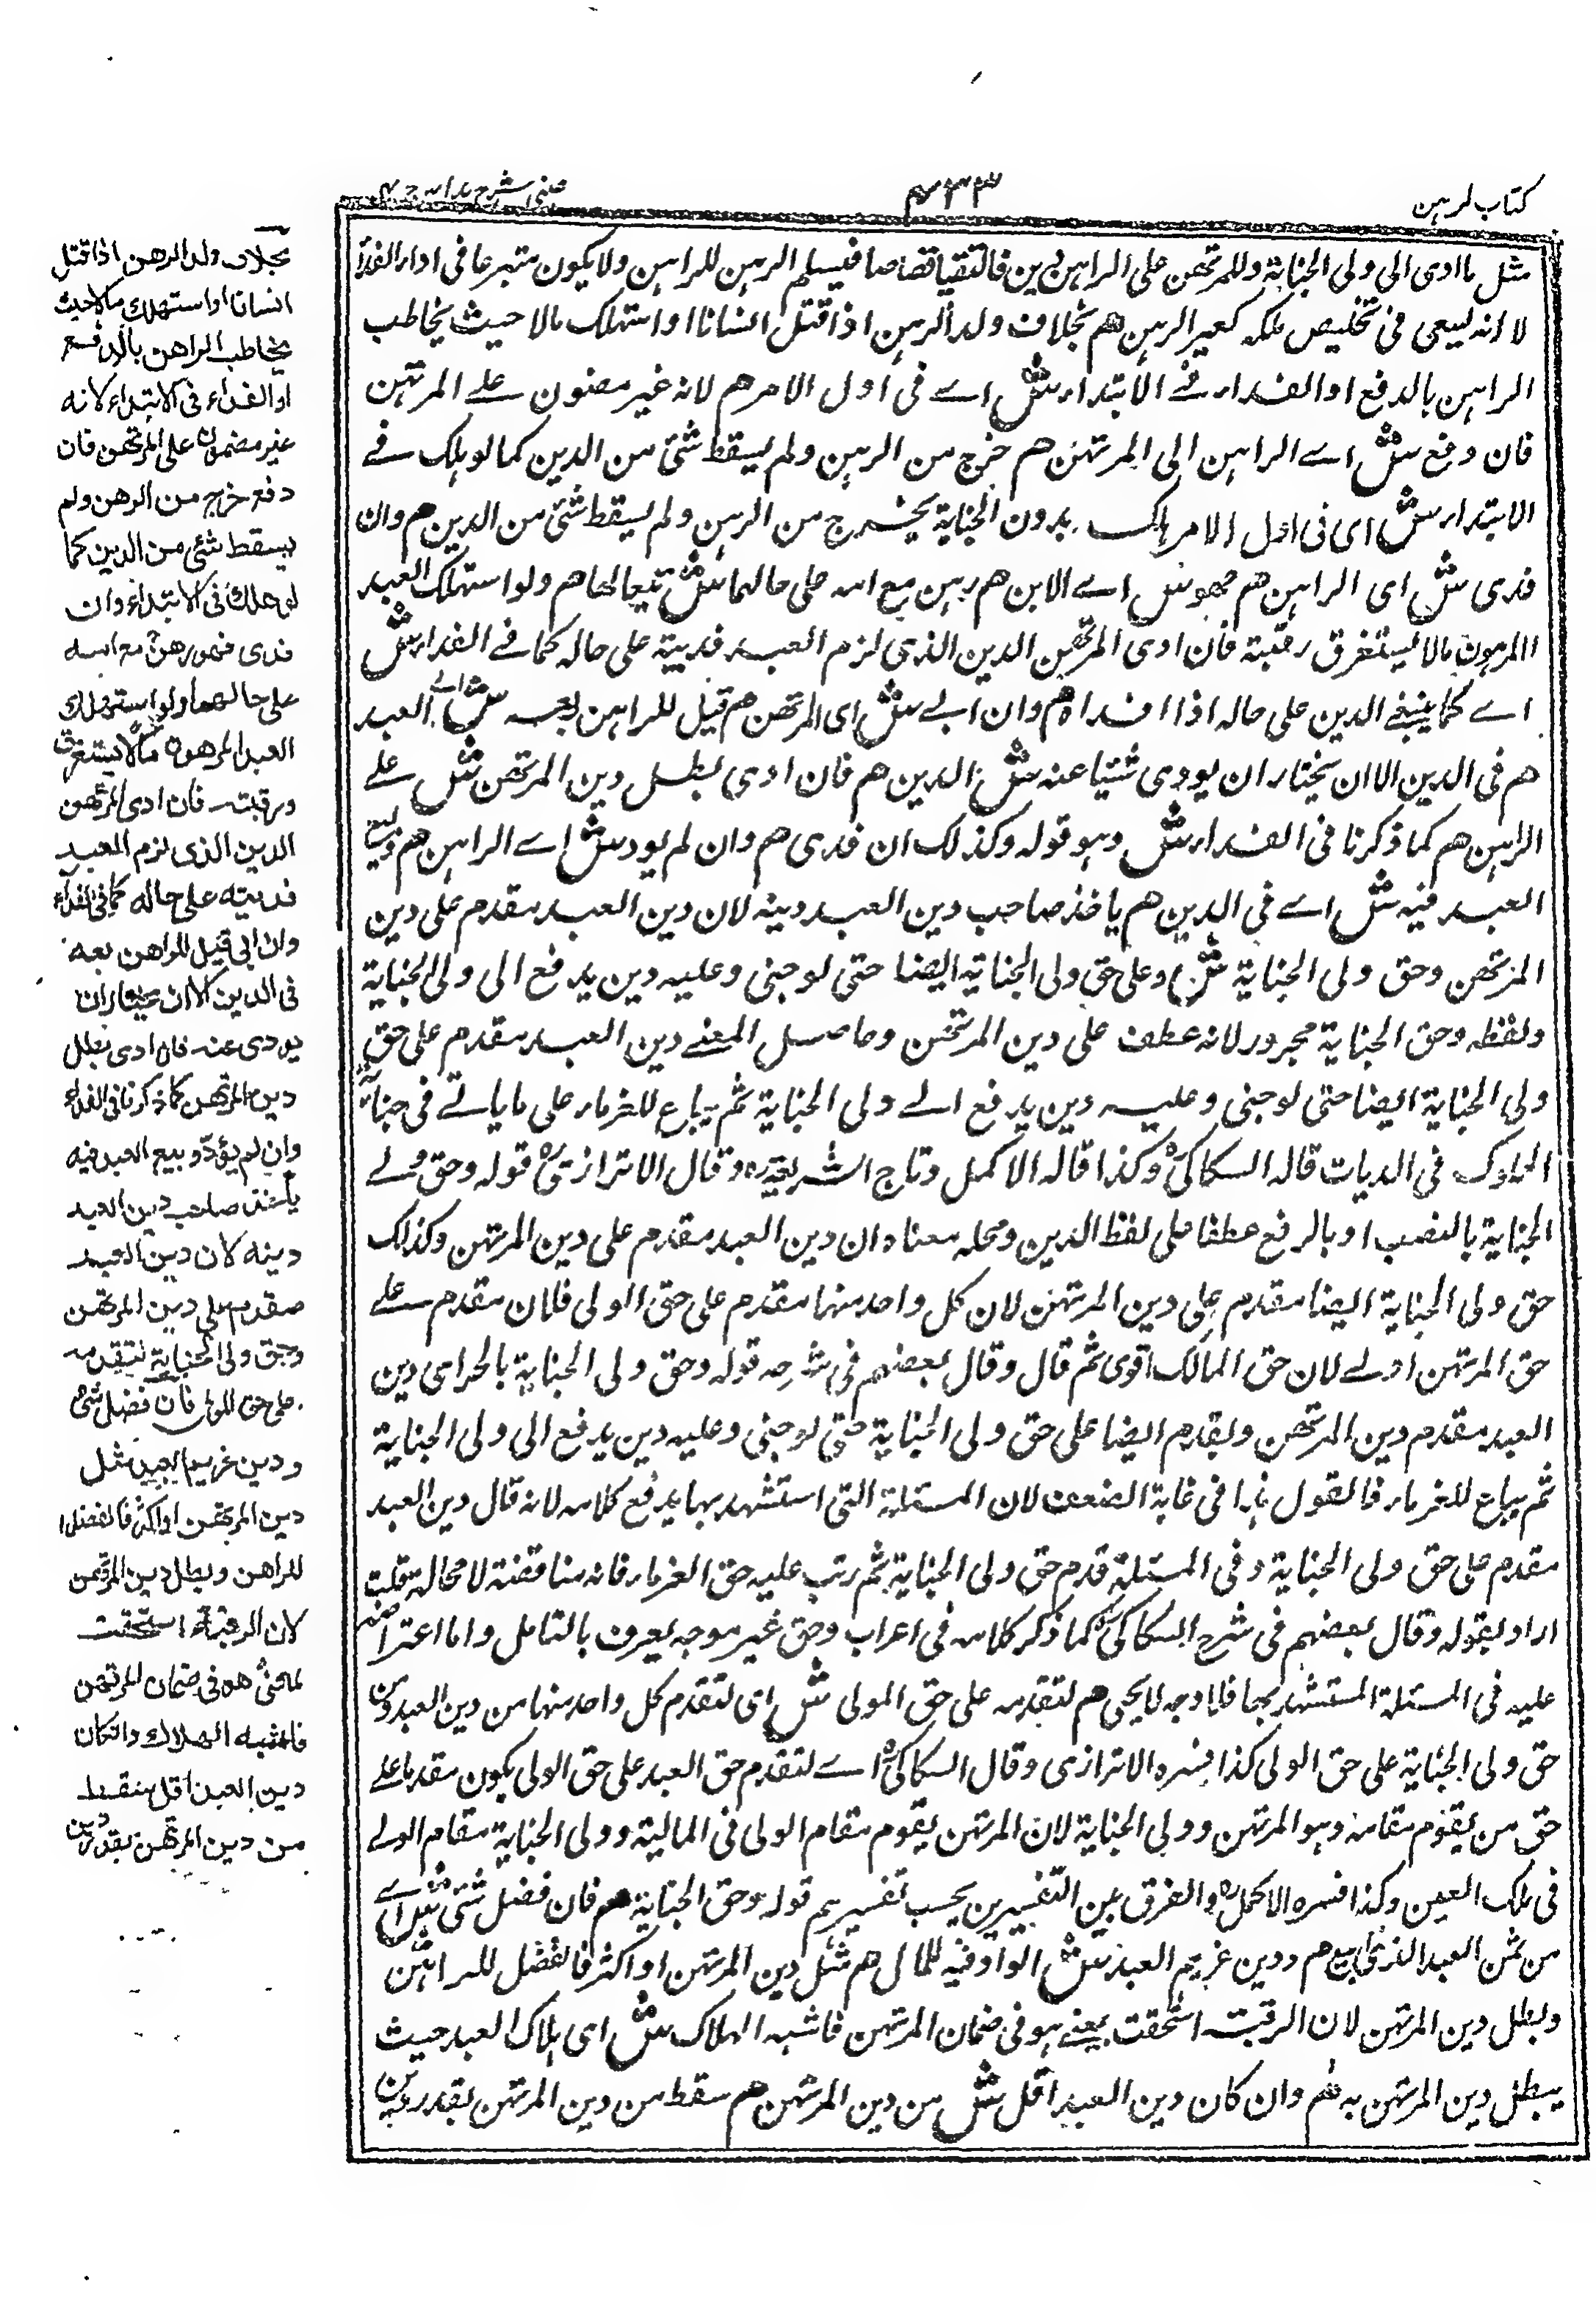 كتاب الرهن
٧٣٣
عيني شرح هدايه ج ٤
مثل ما ادى الى ولى الجناية وللمرتهن على الراهن دين فالتقيا قصاصا فيسلم الرهن للراهن ولا يكون متبرعا فى اداء الفداء
لا انه يسعى فى تخليص ملكه كمعير الرهن هم بخلاف ولد الرهن اذا قتل انسانا او استهلك مالا حيث يخاطب
الراهن بالدفع او الفداء فى الابتداء ش اے فى اول الامر هم لانه غير مضمون على المرتهن
فان دفع ش اے الراهن الى المرتهن هم خرج من الرهن ولم يسقط شئ من الدين كما لو هلك فے
الابتداء ش اى فى اول الامر هلك بدون الجناية يخرج من الرهن ولم يسقط شئ من الدين هم وان
فدى ش اى الراهن هم فهو ش اے الابن هم رهن مع امه على حالهما ش تبعا لها هم ولو استهلك العبد
المرهون مالا يستغرق رقبته فان ادى المرتهن الدين الذى لزم العبد فدينه على حاله كما فے الفداء ش
اے كما يبقے الدين على حاله اذا افداه هم وان ابے ش اى المرتهن هم قيل للراهن بعه ش اے العبد
هم فى الدين الا ان يختار ان يودى شيئا عنه ش الدين هم فان ادى بطل دين المرتهن ش على
الراهن هم كما ذكرنا فى الفداء ش وهو قوله وكذلك ان فدى هم وان لم يود ش اے الراهن هم وبيع
العبد فيه ش اے فى الدين هم ياخذ صاحب دين العبد دينه لان دين العبد مقدم على دين
المرتهن وحق ولى الجناية ش وعلى حق ولى الجناية ايضا حتى لو جنى وعليه دين يدفع الى ولى الجناية
ولفظه وحق الجناية مجرور لانه عطف على دين المرتهن وحاصل المعنے دين العبد مقدم على حق
ولى الجناية ايضا حتى لو جنى وعليه دين يدفع الے ولى الجناية ثم يباع للغرماء على ما ياتے فى جناية
المملوك فى الديات قاله السكاكى وكذا قاله الاكمل وتاج الشريعة وقال الاترازى قوله وحق ولے
الجناية بالنصب او بالرفع عطفا على لفظ الدين ومحله معناه ان دين العبد مقدم على دين المرتهن وكذلك
حق ولى الجناية ايضا مقدم على دين المرتهن لان كل واحد منهما مقدم على حق الولى فلان مقدم على
حق المرتهن اولے لان حق المالك اقوى ثم قال وقال بعضهم فى شرحه قوله وحق ولى الجناية بالجر اى دين
العبد مقدم دين المرتهن ويقدم ايضا على حق ولى الجناية حتى لو جنى وعليه دين يدفع الى ولى الجناية
ثم يباع للغرماء فالقول هذا فى غاية الضعف لان المسئلة التى استشهد بها يدفع كلامه لانه قال دين العبد
مقدم على حق ولى الجناية وفى المسئلة قدم حق ولى الجناية ثم رتب عليه حق الغرماء فانه مناقضة لا محالة قلت
اراد بقوله وقال بعضهم فى شرح السكاكى كما ذكر كلامه فى اعراب وحق غير موجه يعرف بالتامل واما اعتراضه
عليه فى المسئلة المستشهد بها فلا وجه لا يجى هم لتقدمه على حق المولى ش اى لتقدم كل واحد منهما من دين العبد ومن
حق ولى الجناية على حق الولى كذا فسره الاترازى وقال السكاكى اے لتقدم حق العبد على حق الولى يكون مقدما على
حق من يقوم مقامه وهو المرتهن وولى الجناية لان المرتهن يقوم مقام الولى فى المالية وولى الجناية مقام الولے
فى ملك العين وكذا فسره الاكمل والفرق بين التفسيرين بحسب تفسيرهم قوله وحق الجناية هم فان فضل شئ ش اے
من ثمن العبد الذى بيع هم ودين غريم العبد ش الواو فيه للحال هم مثل دين المرتهن او اكثر فالفضل للراهن
وبطل دين المرتهن لان الرقبة استحقت بمعنے هو فى ضمان المرتهن فاشبه الهلاك ش اى هلاك العبد حيث
يبطل دين المرتهن به هم وان كان دين العبد اقل ش من دين المرتهن هم سقط من دين المرتهن بقدر دين
بخلاف ولد الرهن اذا قتل
انسانا او استهلك مالا حيث
يخاطب الراهن بالدفع
او الفداء فى الابتداء لانه
غير مضمون على المرتهن فان
دفع خرج من الرهن ولم
يسقط شئ من الدين كما
لو هلك فى الابتداء وان
فدى فهو رهن مع امه
على حالهما ولو استهلك
العبد المرهون مالا يستغرق
رقبته فان ادى المرتهن
الدين الذى لزم العبد
فدينه على حاله كما فى الفداء
وان ابى قيل للراهن بعه
فى الدين الا ان يختار ان
يودى عنه فان ادى بطل
دين المرتهن كما ذكرنا فى الفداء
وان لم يؤد وبيع العبد فيه
يأخذ صاحب دين العبد
دينه لان دين العبد
مقدم على دين المرتهن
وحق ولى الجناية لتقدمه
على حق المولى فان فضل شئ
ودين غريم العبد مثل
دين المرتهن او اكثر فالفضل
للراهن وبطل دين المرتهن
لان الرقبة استحقت
لمعنى هو فى ضمان المرتهن
فاشبه الهلاك وان كان
دين العبد اقل سقط
من دين المرتهن بقدر دين